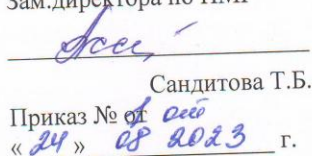 Зам.директора по НМР
Сандитова Т.Б.
Приказ № 1 от
« 24 » 08 2023 г.